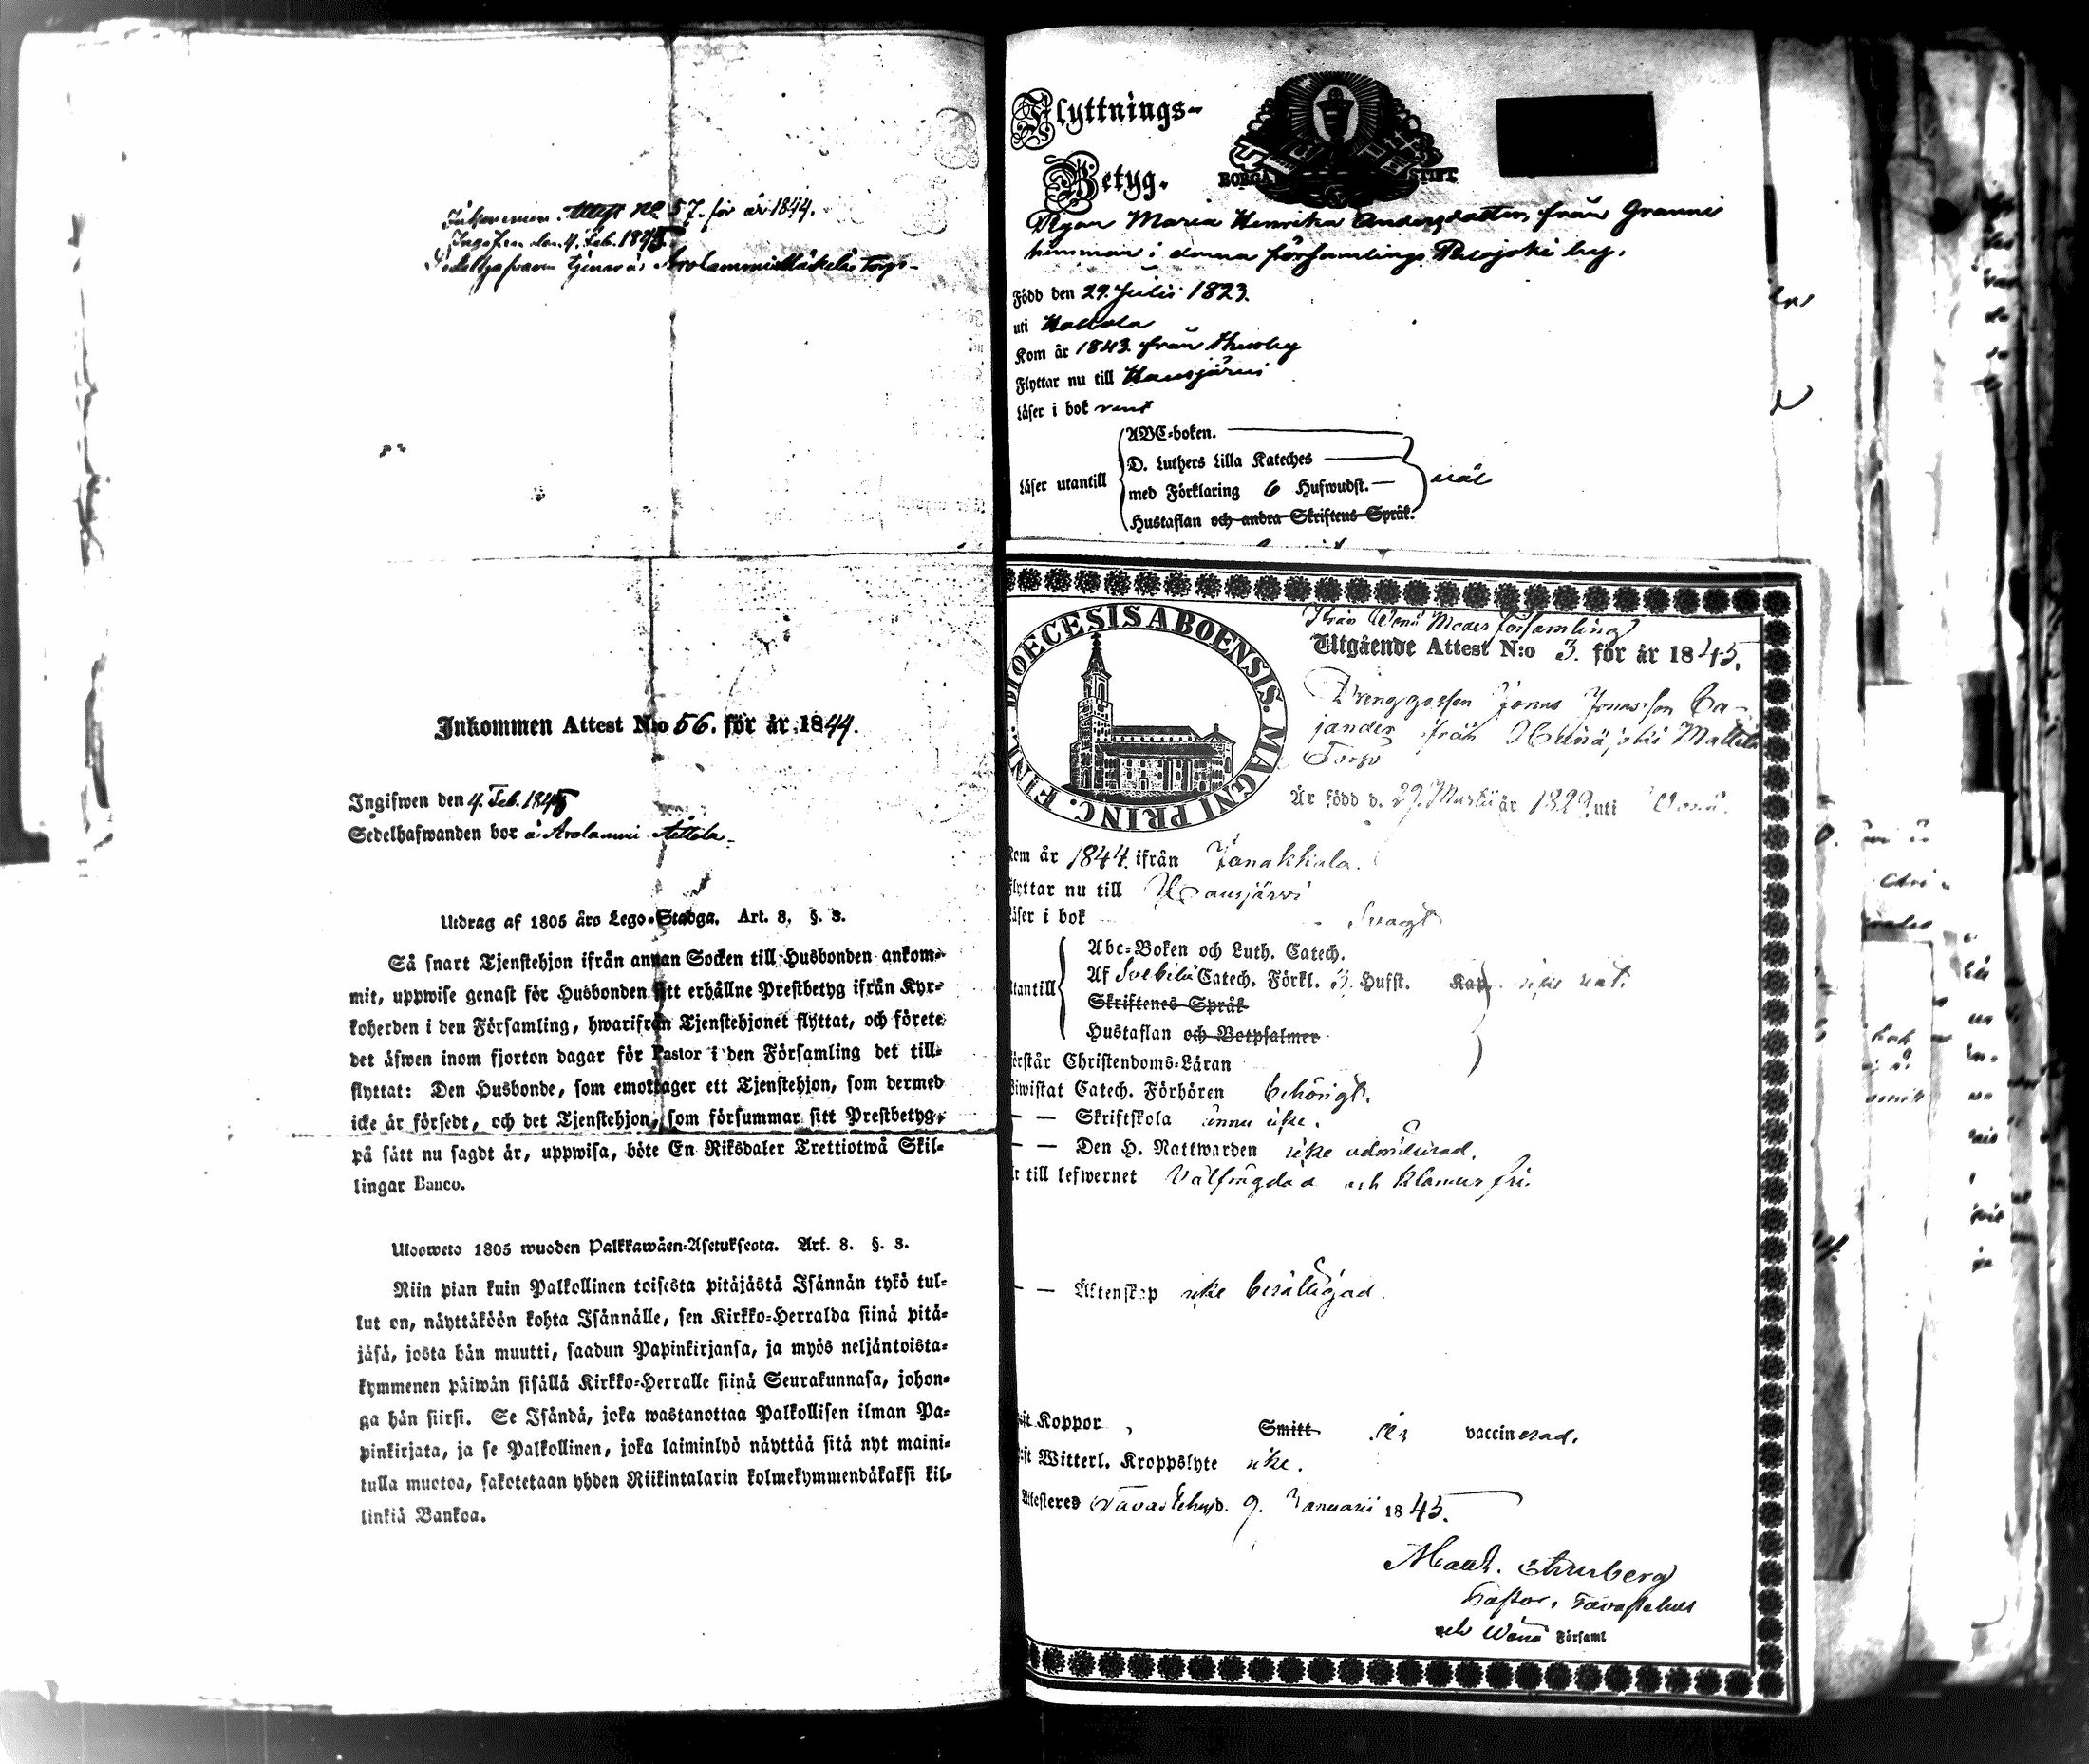 Inkommen Attest No 57. för år 1844.
Ingifven den 4. Feb. 1845
Sedelhafvaren tjenar å Arolammi Mäkelä Torp-
Inkommen Attest N:o 56. för år 1844.
Ingifwen den 4. Feb. 1845
Sedelhafwanden bor å Arolammi Anttila
Utdrag af 1805 års Lego-Stadga. Art. 8. §. 3.
Så snart Tjenstehjon ifrån annan Socken till Husbonden ankom-
mit, uppwise genast för Husbonden sitt erhållne Prestbetyg ifrån Kyr-
koherden i den Församling, hwarifrån Tjenstehjonet flyttat, och förete
det äfwen inom fjorton dagar för Pastor i den Församling det till-
flyttat: Den Husbonde, som emottager ett Tjenstehjon, som dermed
icke är försedt, och det Tjenstehjon, som försummar sitt Prestbetyg,
på sätt nu sagdt är, uppwisa, böte En Riksdaler Trettiotwå Skil-
lingar Banco.
Ulosweto 1805 wuoden Palkkawäen-Asetuksesta. Art. 8. §. 3.
Niin pian kuin Palkollinen toisesta pitäjästä Isännän tykö tul-
lut on, näyttäköön kohta Isännälle, sen Kirkko-Herralda siinä pitä-
jäsä, josta hän muutti, saadun Papinkirjansa, ja myös neljäntoista-
kymmenen päiwän sisällä Kirkko-Herralle siinä Seurakunnasa, johon-
ga hän siirsi. Se Isändä, joka wastanottaa Palkollisen ilman Pa-
pinkirjata, ja se Palkollinen, joka laiminlyö näyttää sitä nyt maini-
tulla muotoa, sakotetaan yhden Riikintalarin kolmekymmendäkaksi kil-
linkiä Bankoa.
Flyttnings-
Betyg.
BORGÅ STIFT.
Pigan Maria Henrika Andersdotter, från Granni
hemman i denna församlings Palojoki by.
Född den 29. Julii 1823.
uti Hollola
Kom år 1843. från Thusby
Flyttar nu till Hausjärvi
Läser i bok rent
Läser utantill
ABC-boken.
D. Luthers Lilla Kateches
med Förklaring 6 Hufwudst.
Hustaflan och andra Skriftens Språk.
DIOECESIS ABOENSIS. MAGNI PRINC. FINL.
Från Wånå Moder församling
Utgående Attest N:o 3. för år 1845.
Drenggossen Jonas Jonasson Ca-
jander från Mattila
Torp
Är född d. 29. Martii år 1829. uti Wånå.
Kom år 1844. ifrån Janakkala.
Flyttar nu till Hausjärvi
Läser i bok Svagt
Utantill
Abc-Boken och Luth. Catech.
Af Svebilii Catech. Förkl. 3 Hufst. Kap
Skriftenes Språk
Hustaflan och Botpsalmer
Förstår Christendoms-Läran
Biwistat Catech. Förhören behörigt.
— — Skriftskola ännu icke.
— — Den H. Nattwarden icke admitterad.
Är till lefwernet Välfrägdad och klanderfri.
— — Äktenskap icke besälligad.
Haft Koppor Smitt är vaccinerad.
Haft Witterl. Kroppslyte icke.
Attesteres Tavastehus d. 9. Januarii 1845.
Pastor, Tavastehus
och Wånå Församl